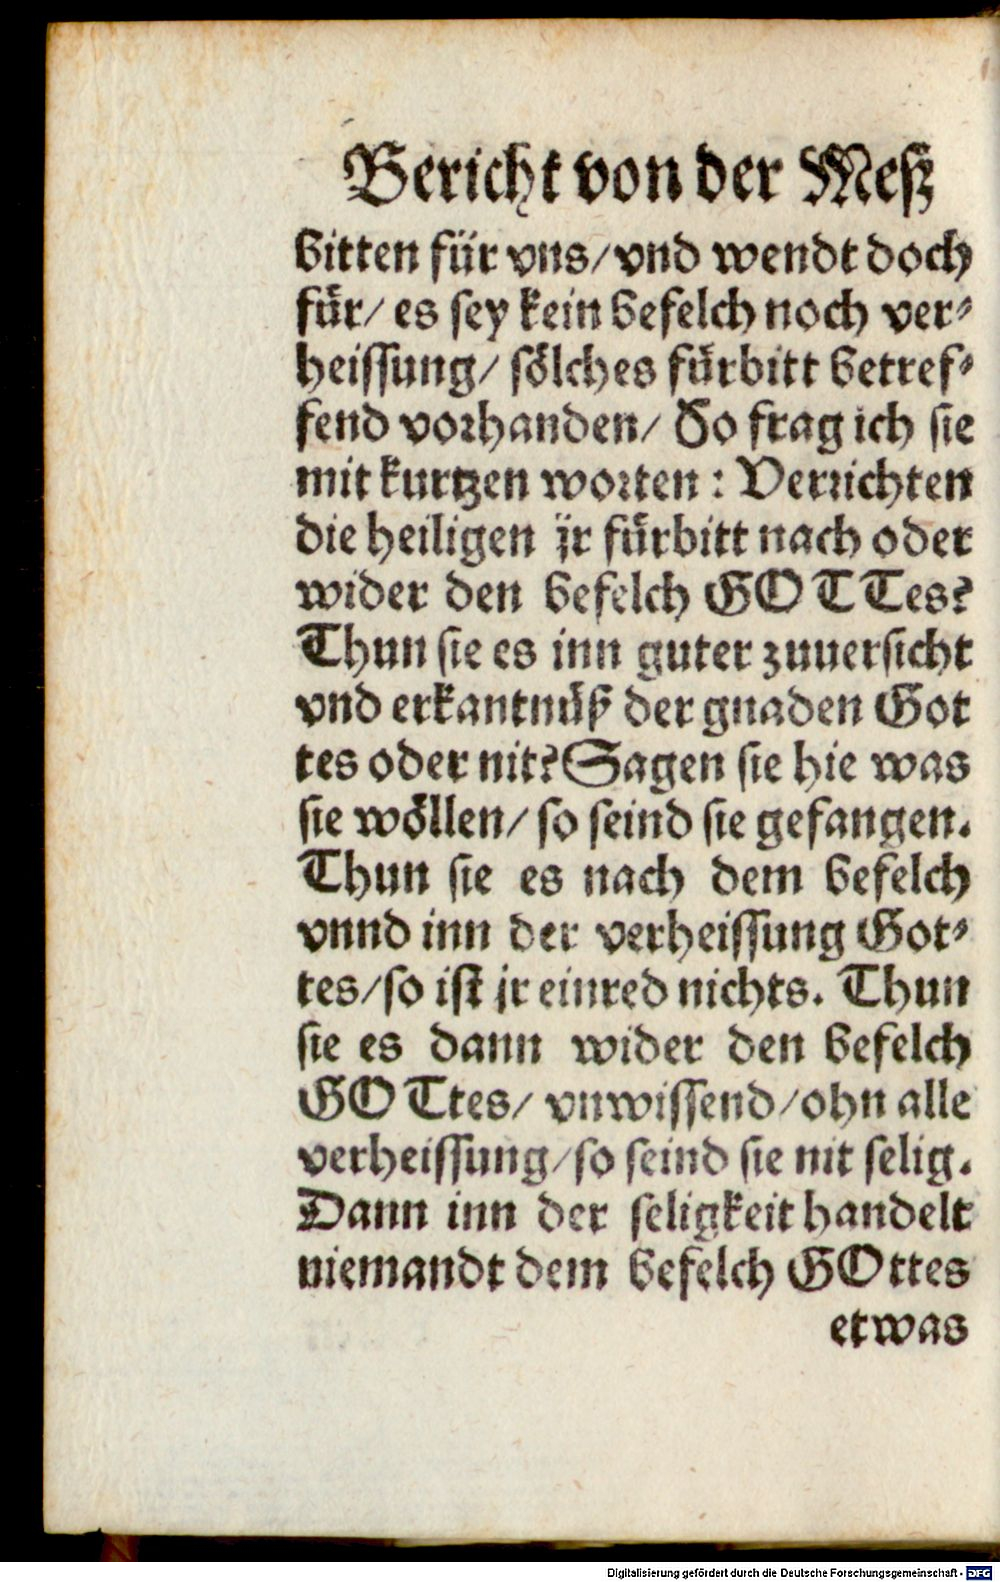 Bericht von der Meß
bitten für vns/ vnd wendt doch
für/ es sey kein befelch noch ver⸗
heissung/ sölches fürbitt betref⸗
fend vorhanden/ So frag ich sie
mit kurtzen worten: Verrichten
die heiligen jr fürbitt nach oder
wider den befelch GOTTes?
Thun sie es inn guter zuuersicht
vnd erkantnüß der gnaden Got
tes oder nit? Sagen sie hie was
sie wöllen/ so seind sie gefangen.
Thun sie es nach dem befelch
vnnd inn der verheissung Got⸗
tes/ so ist jr einred nichts. Thun
sie es dann wider den befelch
GOTtes/ vnwissend/ ohn alle
verheissung/ so seind sie nit selig.
Dann inn der seligkeit handelt
niemandt dem befelch GOttes
etwas
Digitalisierung gefördert durch die Deutsche Forschungsgemeinschaft - DFG